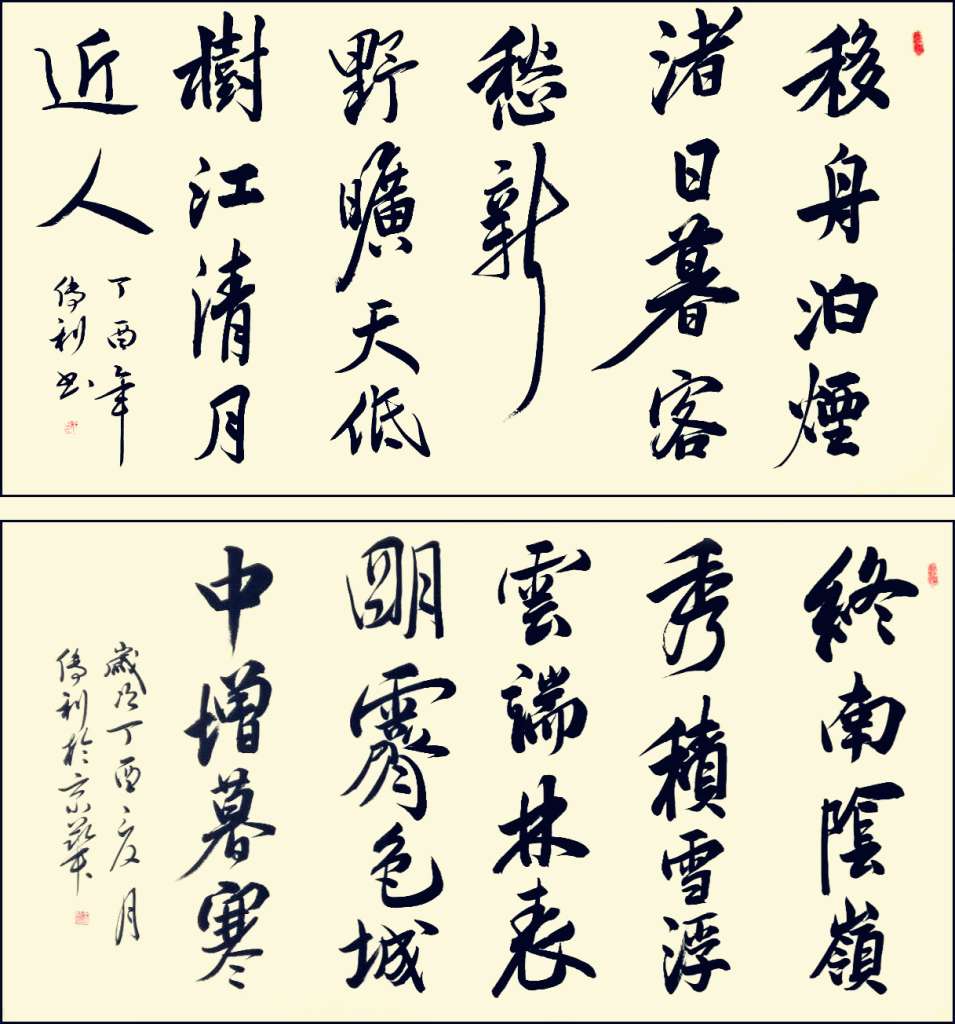 移舟泊煙
渚日暮客
愁新
野曠天低
樹江清月
近人
丁酉年
傳利书
終南陰嶺
秀積雪浮
雲端林表
明霽色城
中增暮寒
歲次丁酉之夏月
傳利於京華